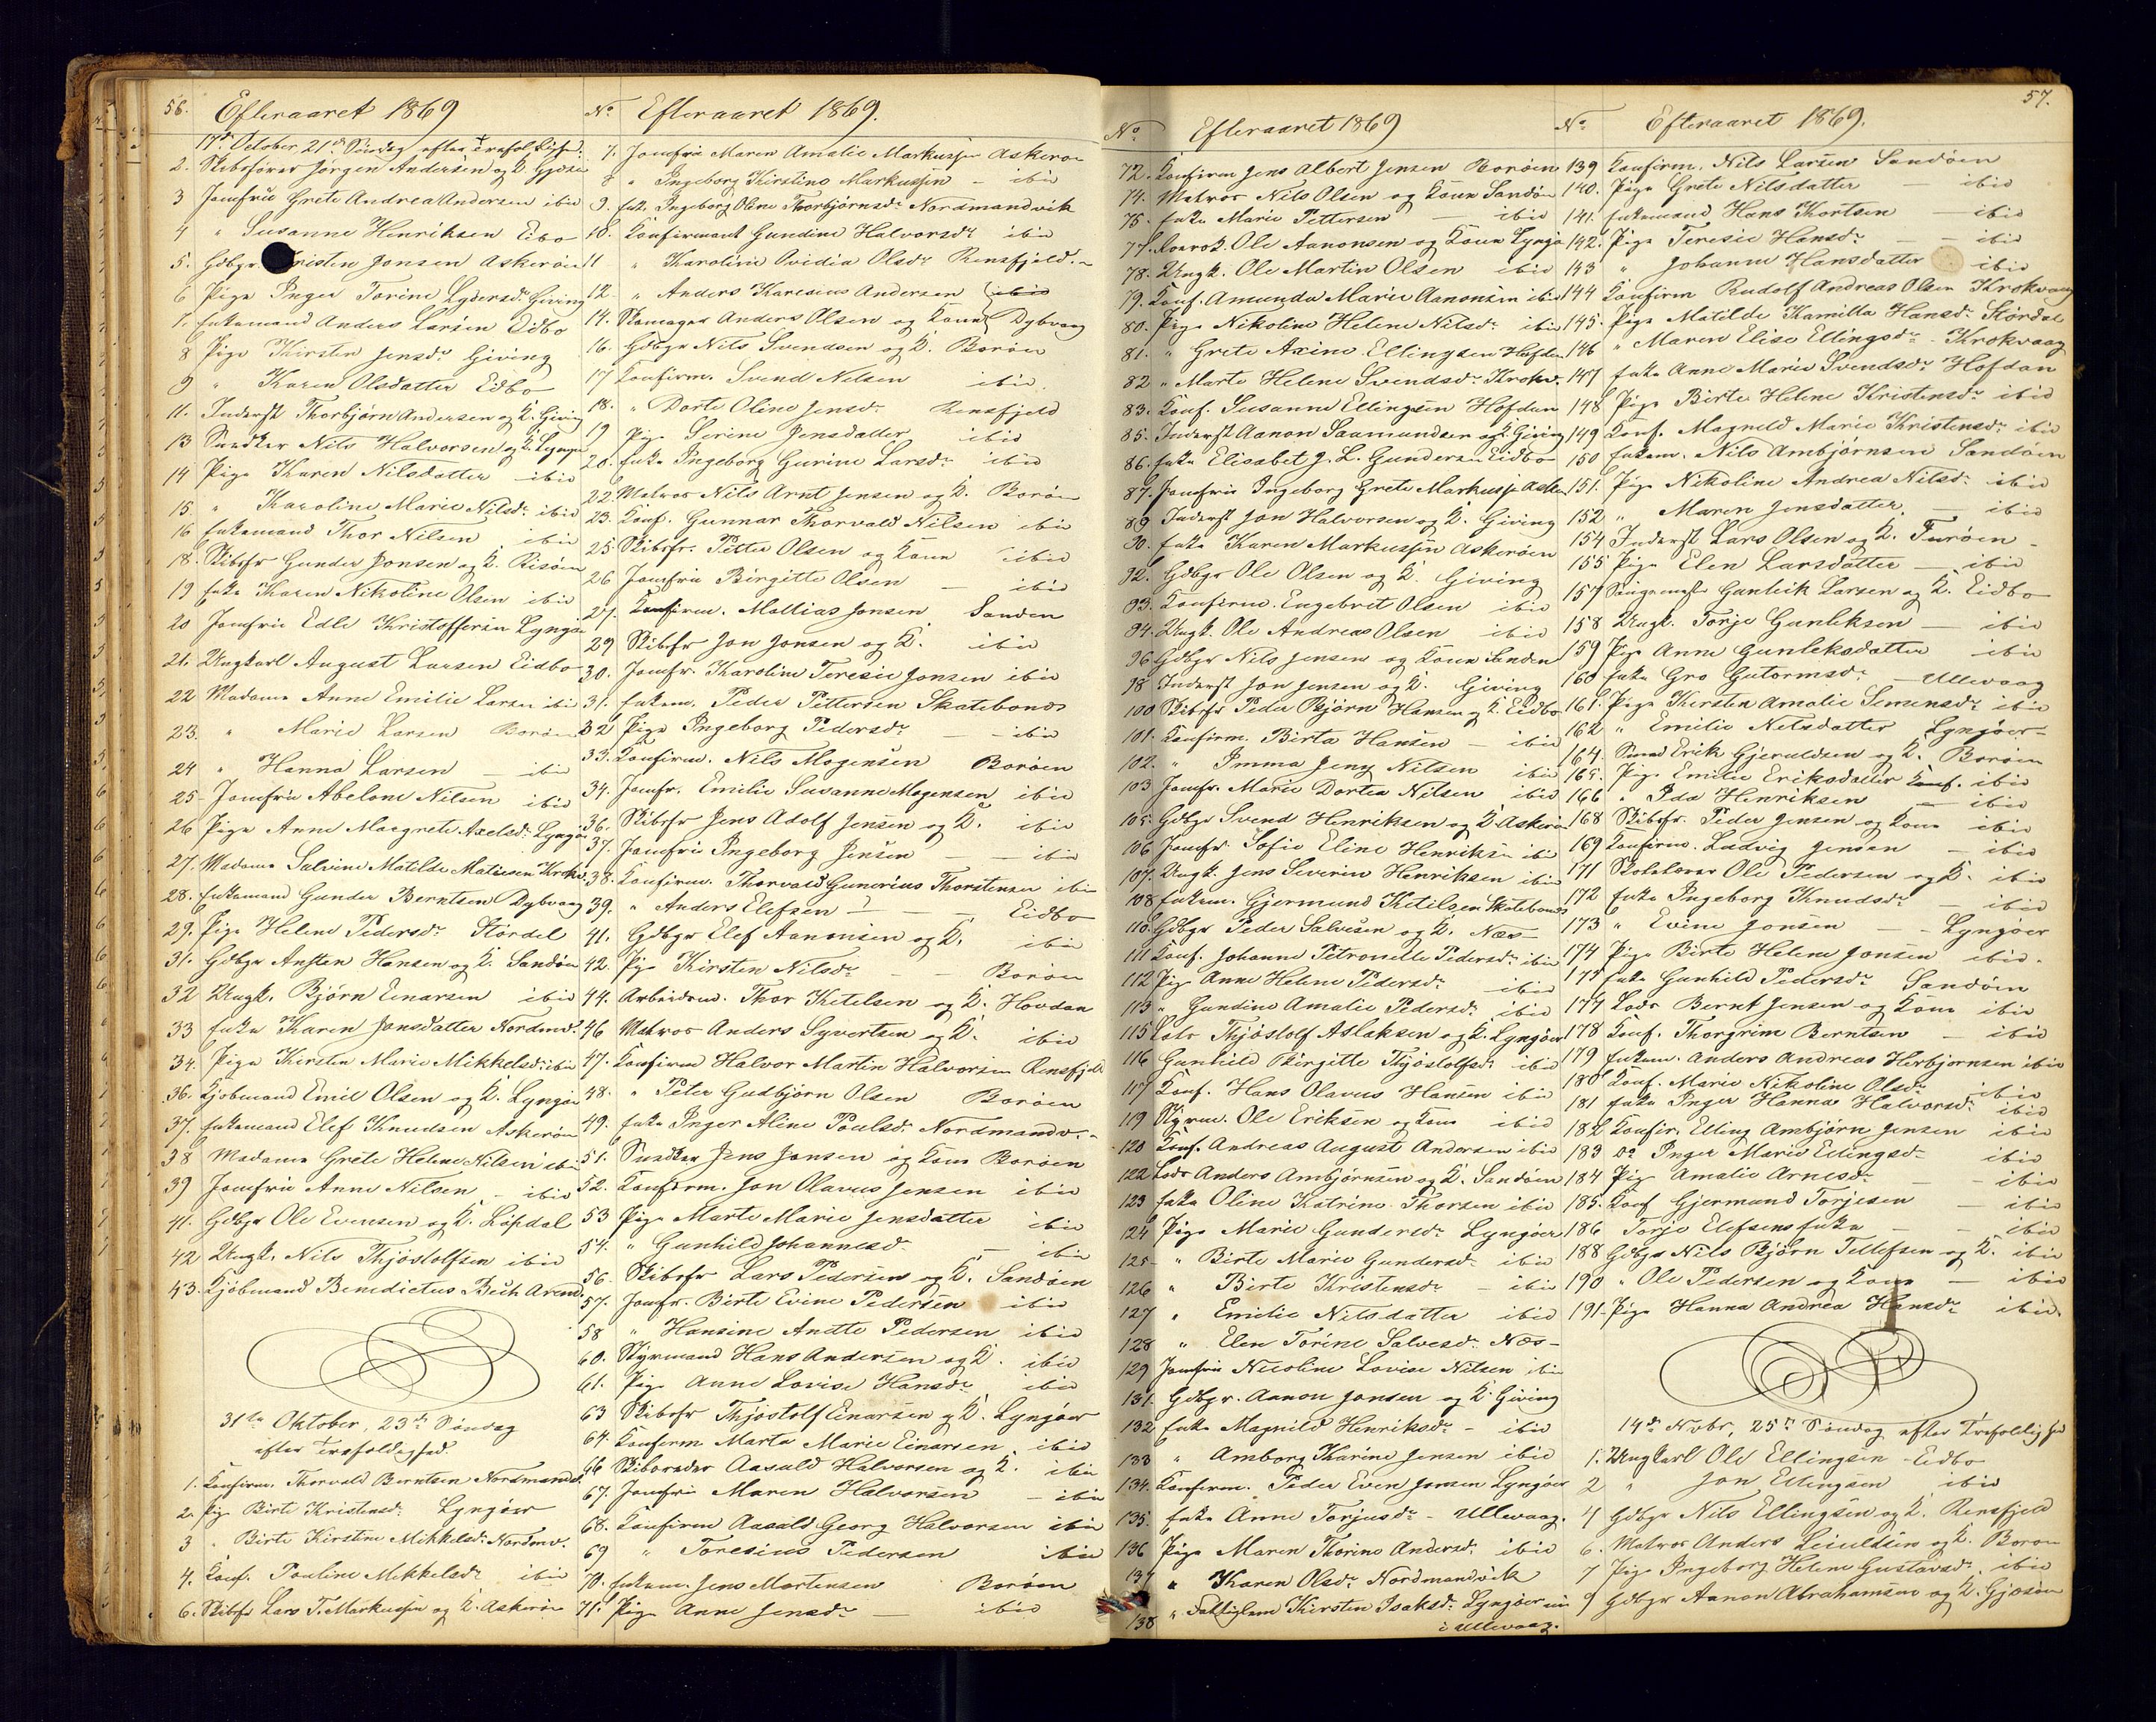 56. Efteraaret 1869
17de October, 21de Søndag efter Trefoldighed:
2. Skibsfører Jørgen Andersen og K. Gjøsø
3 Jomfru Grete Andrea Andersen ibid
4 " Susanne Henriksen Eibo
5. Gdbgr. Kristen Jonsen Askerøen
6 Pige Inger Torine Lydersdr. Giving
7. Enkemand Anders Larsen Eidbo
8 Pige Kirsten Jensdr. Giving
9 " Karen Olsdatter Eidbo
11. Inderst Thorbjørn Andersen og K. Giving
13 Snedker Nils Halvorsen og K. Lyngø
14 Pige Karen Nilsdatter ibid
15. " Karoline Marie Nilsdr. ibid
16 Enkemand Thor Nilsen ibid
18. Skibsfr Gunder Jonsen og K. Risøen
19 Enke Karen Nikoline Olsen ibid
20 Jomfru Edle Kristoffersen Lyngø
21. Ungkarl August Larsen Eidbo
22 Madame Anne Emilie Larsen ibid
23. " Marie Larsen Borøen
24 " Hanna Larsen — ibid
25- Jomfru Abelone Nilsen ibid
26 Pige Anne Margrete Axelsdr. Lyngø
27. Madame Salvine Matilde Matiesen Krokv.
28. Enkemand Gunder Berntsen Dybvaag
29. Pige Helene Pedersdr. Stördel
31. Gdbgr Ansten Hansen og K. Sandøen
32 Ungk. Bjørn Einarsen ibid
33 Enke Karen Jonsdatter Nordmv.
34. Pige Kirsten Marie Mikkelsdr. ibid
36. Kjøbmand Emil Olsen og K. Lyngør
37. Enkemand Elef Knudsen Askerøen
38 Madame Grete Helene Nilsen ibid
39 Jomfru Anne Nilsen — ibid
41. Gdbgr Ole Evensen og K. Löpdal
42 Ungk. Nils Thjøstolfsen ibid
43. Kjøbmand Benedictus Bech Arend.
31te Oktober, 23de Søndag
efter Trefoldighed.
1. Konfirm. Thorvald Berntsen Nordmandv.
2. Pig. Birte Kristensdr. Lyngøer
3 " Birte Kirstine Mikkelsdr. Nordmv.
4. Konf. Pauline Mikkelsdr. ibid
6. Skibsfr Lars T. Markussen og K. Askerøen
No. Efteraaret 1869.
7. Jomfru Maren Amalie Markussen Askerøen
8 " Ingeborg Kirstine Markussen — ibid
9. Enk. Ingeborg Oline Thorbjørnsdr. Nordmandvik
10. Konfirmant Gundine Halvorsdr. ibid
11 " Karoline Ovidia Olsdr. Rensfjeld.
12. " Anders Karesius Andersen ibid
14. Skomager Anders Olsen og Kone Dybvaag
16. Gdbgr Nils Svendsen og K. Borøen
17 Konfirm. Svend Nilsen ibid.
18. " Dorte Oline Jensdr. Rensfjeld
19 Pige Serine Jensdatter ibid
20. Enke Ingeborg Gurine Larsdr. ibid
22. Matros Nils Arnt Jensen og K. Borøen
23. Konf. Gunnar Thorvald Nilsen ibid
25. Skibsfr. Petter Olsen og Kone ibid
26 Jomfru Birgitte Olsen — ibid
27. Konfirm. Mattias Jonsen Sanden
29 Skibsfr Jon Jonsen og K. ibid
30. Jomfr. Karoline Teresie Jonsen ibid
31. Enkem. Peder Pettersen Skatebones
32 Pige Ingeborg Pedersdr. — ibid
33. Konfirm. Nils Mogensen Borøen
34. Jomfr. Emilie Susanne Mogensen ibid
36. Skibsfr Jens Adolf Jensen og K. ibid
37. Jomfru Ingeborg Jensen — ibid
38. Konfirm. Thorvald Gunerius Thorstensen ibid
39. " Anders Elefsen — — Eidbo
41. Gdbgr Elef Aanonsen og K. ibid
42. Pige Kirsten Nilsdr. — Borøen
44. Arbeidsm. Thor Ketelsen og K. Hovdan
46 Matros Anders Syvertsen og K. ibid
47. Konfirm Halvor Martin Halvorsen Rensfjeld
48. " Peter Gudbjørn Olsen Borøen
49. Enke Inger Aline Poulsdr. Nordmandv.
51. Snedker Jens Jonsen og Kone Borøen
52. Konfirm. Jon Olavus Jensen ibid
53 Pige Marte Marie Jensdatter ibid
54. " Gunhild Johannesdr. — ibid
56. Skibsfr Lars Pedersen og K. Sandøen
57. Jomfr. Birte Evine Pedersen ibid
58 " Hansine Anette Pedersen ibid
60. Styrmand Hans Andersen og K. ibid
61. Pige Anne Lovise Hansdr. ibid
63 Skibsfr Thjøstolf Einarsen og K. Lyngøer
64. Konfirm Marta Marie Einarsen ibid
66 Skibsreder Aasuld Halvorsen og K. ibid
67. Jomfru Maren Halvorsen — ibid
68. Konfirm Aasuld Georg Halvorsen ibid
69 " Toresius Pedersen ibid
70. Enkem. Jens Mortensen Borøen
71. Pige Anne Jensdr. — ibid
57.
No. Efteraaret 1869
72. Konfirm Jens Albert Jensen Borøen
74. Matros Nils Olsen og Kone Sandøen
75. Enke Marie Pettersen — ibid
77. Ole Aanonsen og Kone Lyngø
78. Ungk. Ole Martin Olsen ibid
79. Konf. Amunda Marie Aanonsen ibid
80. Pige Nikoline Helene Nilsdr. ibid
81. " Grete Axine Ellingsen Hofdan
82 " Marte Helene Svendsdr. Krokv.
83. Konf. Susanne Ellingsen Hofdan
85. Inderst Aanon Saamundsen og K. Giving
86. Enke Elisabet J. L. Gundersen Eidbo
87. Jomfru Ingeborg Grete Markussen Asker
89 Inderst Jon Halvorsen og K. Giving
90. Enke Karen Markussen Askerøen
92. Gdbgr Ole Olsen og K. Giving
93. Konfirm. Engebret Olsen ibid
94. Ungk. Ole Andreas Olsen ibid
96 Gdbgr Nils Jensen og Kone Sanden
98 Inderst Jon Jensen og K. Giving
100 Skibsfr Peder Bjørn Hansen og K. Eidbo
101. Konfirm. Birta Hansen — ibid
102. " Imma Jeny Nilsen ibid
103 Jomfr. Marie Dortea Nilsen ibid
105. Gdbgr Svend Henriksen og K. Askerøen
106 Jomfr. Sofie Eline Henriksen ibid
107. Ungk. Jens Severin Henriksen ibid
108 Enkem. Gjermund Ketilsen Skatebones
110. Gdbgr Peder Salvesen og K. Næs
111 Konf. Johanne Petronelle Pedersdr. ibid
112 Pige Anne Helene Pedersdr. ibid
113 " Gundine Amalie Pedersdr. ibid
115 Lods Thjøstolf Aslaksen og K. Lyngøer
116 Gunhild Birgitte Thjøstolfsdr. ibid
117 Konf. Hans Olavus Hansen ibid
119 Styrm. Ole Eriksen og Kone ibid
120 Konf. Andreas August Andersen ibid
122 Lods Anders Ambjørnsen og K. Sandøen
123 Enke Oline Katrine Thorsen ibid
124 Pige Marie Gundersdr. Lyngøer
125- " Birte Marie Gundersdr. ibid
126 " Birte Kristensdr. — ibid
127 " Emilie Nilsdatter ibid
128 " Elen Torine Salvesdr. Næs
129 Jomfru Nicoline Lovise Nilsen ibid
131. Gdbgr. Aanon Jonsen og K. Giving
132 Enke Magnild Henriksdr. - ibid
133 " Amborg Karine Jensen ibid
134. Konfirm. Peder Even Jonsen Lyngøer
135. Enke Anne Torjusdr. - Ullevaag.
136 Pige Maren Thorine Andersdr. ibid
137 " Karen Olsdr. Nordmandvik
138 " Fattiglem Kirsten Isaksdr. Lyngøer
i Ullevaag.
No. Efteraaret 1869.
139 Konfirm. Nils Larsen Sandøen
140. Pige Grete Nilsdatter — ibid
141. Enkemand Hans Kortsen — ibid
142. Pige Teresie Hansdr. — ibid
143 " Johanne Hansdatter ibid
144 Konfirm Rudolf Andreas Olsen Krokvaag
145. Pige Matilde Kamilla Hansdr. Stördal
146 " Maren Elise Ellingsdr. Krokvaag
147 Enke Anne Marie Svendsdr. Hofdan
148 Pige Birte Helene Kristensdr. ibid
149 Konf. Magnild Marie Kristensdr. ibid
150 Enkem. Nils Ambjørnsen Sandöen
151. Pige Nikoline Andrea Nilsdr. ibid
152 " Maren Jensdatter. — ibid
154 Inderst Lars Olsen og K. Furøen
155 Pige Elen Larsdatter — ibid
157 Gunleik Larsen og K. Eidbo
158 Ungk. Torje Gunleksen — ibid
159 Pige Anne Gunleksdatter ibid
160 Enke Gro Gutormsdr. — Ullevaag
161. Pige Kirsten Amalie Simensdr. ibid
162 " Emilie Nilsdatter Lyngøer
164. Smed Erik Gjeruldsen og K. Borøen
165. Pige Emilie Eriksdatter Konf. ibid
166 " Ida Henriksen — ibid
168 Skibsfr. Peder Jensen og Kone ibid
169 Konfirm. Ludvig Jensen — ibid
171 Skolelærer Ole Pedersen og K. ibid
172 Enke Ingeborg Knudsdr. — ibid
173 " Evine Jonsen — Lyngøer
174 Pige Birte Helene Jonsen ibid.
175 Enke Gunhild Pedersdr. Sandöen
177 Lods Bernt Jensen og Kone ibid
178 Konf. Thorgrim Berntsen — ibid
179 Enkem. Anders Andreas Herbjørnsen ibid
180 Konf. Marie Nikoline Olsdr. ibid
181 Enke Inger Hanna Halvorsdr. ibid
182 Konfir. Elling Ambjørn Jensen ibid
183 do Inger Marie Ellingsdr. ibid
184 Pig. Amalie Arnesdr. — ibid
185. Konf Gjermund Torjesen — ibid
186 Torje Elefsens Enke — ibid
188 Gdbgr Nils Bjørn Tellefsen og K. ibid
190 " Ole Pedersen og Kone — ibid
191- Pige Hanna Andrea Hansdr. ibid.
14de Novbr, 25de Søndag efter Trefoldighed
1. Ungkarl Ole Ellingsen Eidbo
2 " Jon Ellingsen ibid
4 Gdbgr Nils Ellingsen og K. Rensfjeld
6. Matros Anders Leieuldsen og K. Borøen
7 Pige Ingeborg Helene Gustavsdr. ibid
9 Gdbgr Aanon Abrahamsen og K. Gjøsøen